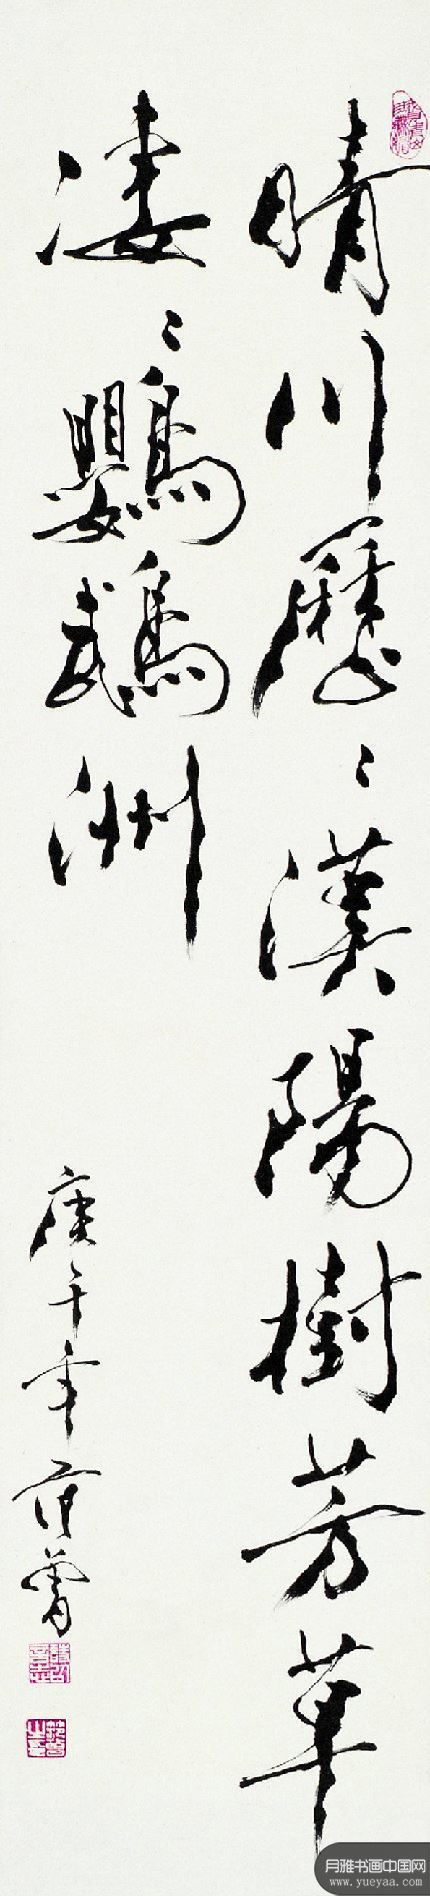 晴川歷々漢陽樹芳草
凄々鸚鵡洲
庚午年 范曾
月雅书画中国网
www.yueyaa.com